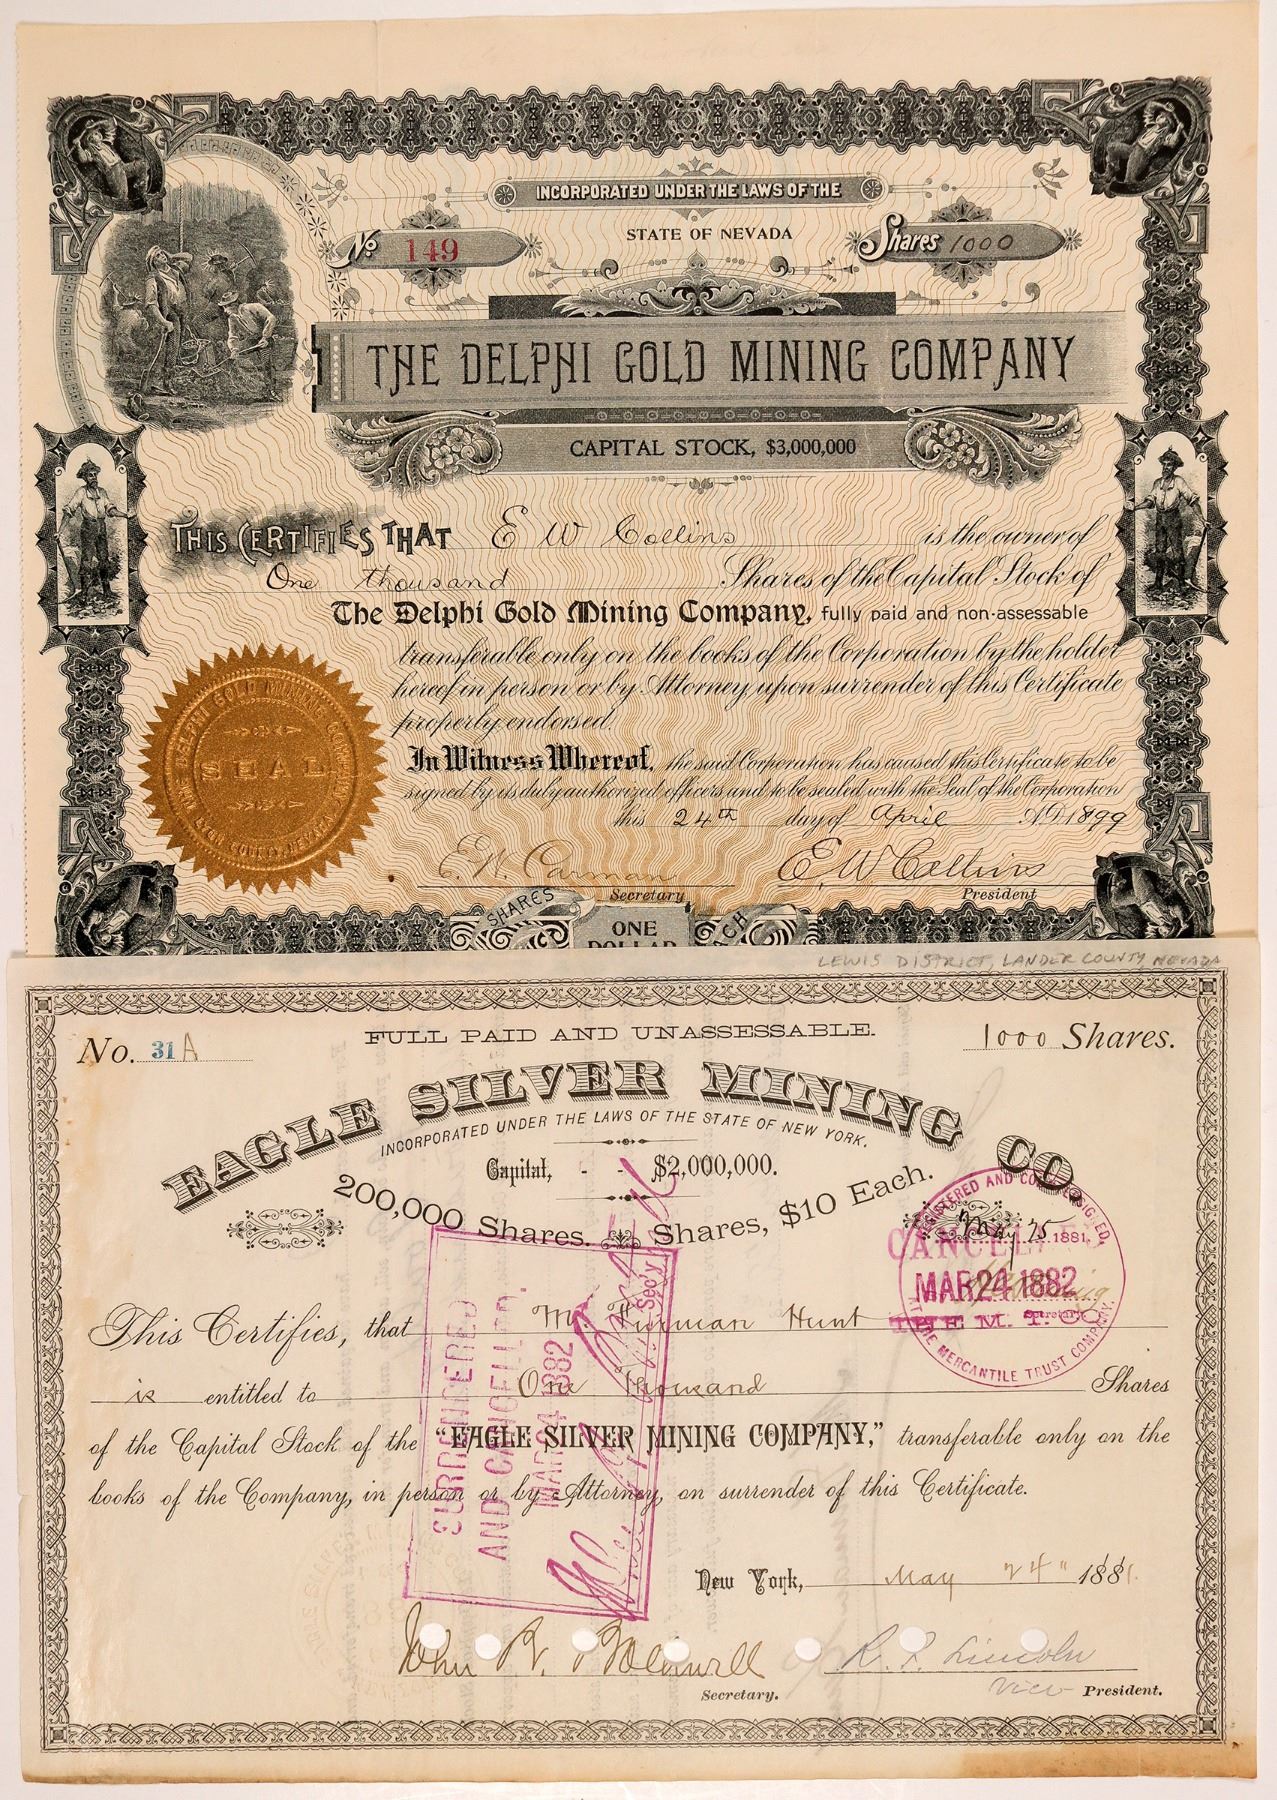 INCORPORATED UNDER THE LAWS OF THE
STATE OF NEVADA
No. 149
Shares 1000
THE DELPHI GOLD MINING COMPANY
CAPITAL STOCK, $3,000,000
THIS CERTIFIES THAT E W Collins is the owner of
One thousand Shares of the Capital Stock of
The Delphi Gold Mining Company, fully paid and non-assessable
transferable only on the books of the Corporation by the holder
hereof in person or by Attorney, upon surrender of this Certificate
properly endorsed.
In Witness Whereof, the said Corporation has caused this Certificate to be
signed by its duly authorized officers and to be sealed with the Seal of the Corporation
this 24th day of April A.D. 1899
THE DELPHI GOLD MINING COMPANY
SEAL
LYON COUNTY, NEVADA
E. W. Carman
Secretary
E. W. Collins
President
SHARES
ONE
DOLLAR
EACH
LEWIS DISTRICT, LANDER COUNTY, NEVADA
No. 31 A
FULL PAID AND UNASSESSABLE.
1000 Shares.
EAGLE SILVER MINING CO.
INCORPORATED UNDER THE LAWS OF THE STATE OF NEW YORK.
Capital, - - $2,000,000.
200,000 Shares. Shares, $10 Each.
REGISTERED AND COUNTERSIGNED,
May 25 1881.
CANCELLED
MAR 24 1882
Secretary
THE M. T. CO.
THE MERCANTILE TRUST COMPANY.
This Certifies, that Furman Hunt
is entitled to One Thousand Shares
of the Capital Stock of the "EAGLE SILVER MINING COMPANY," transferable only on the
books of the Company, in person or by Attorney, on surrender of this Certificate.
SURRENDERED
AND CANCELLED,
MAR 24 1882
Sec'y
New York, May 24" 1881.
John R.
Secretary.
R. P. Lincoln
Vice President.